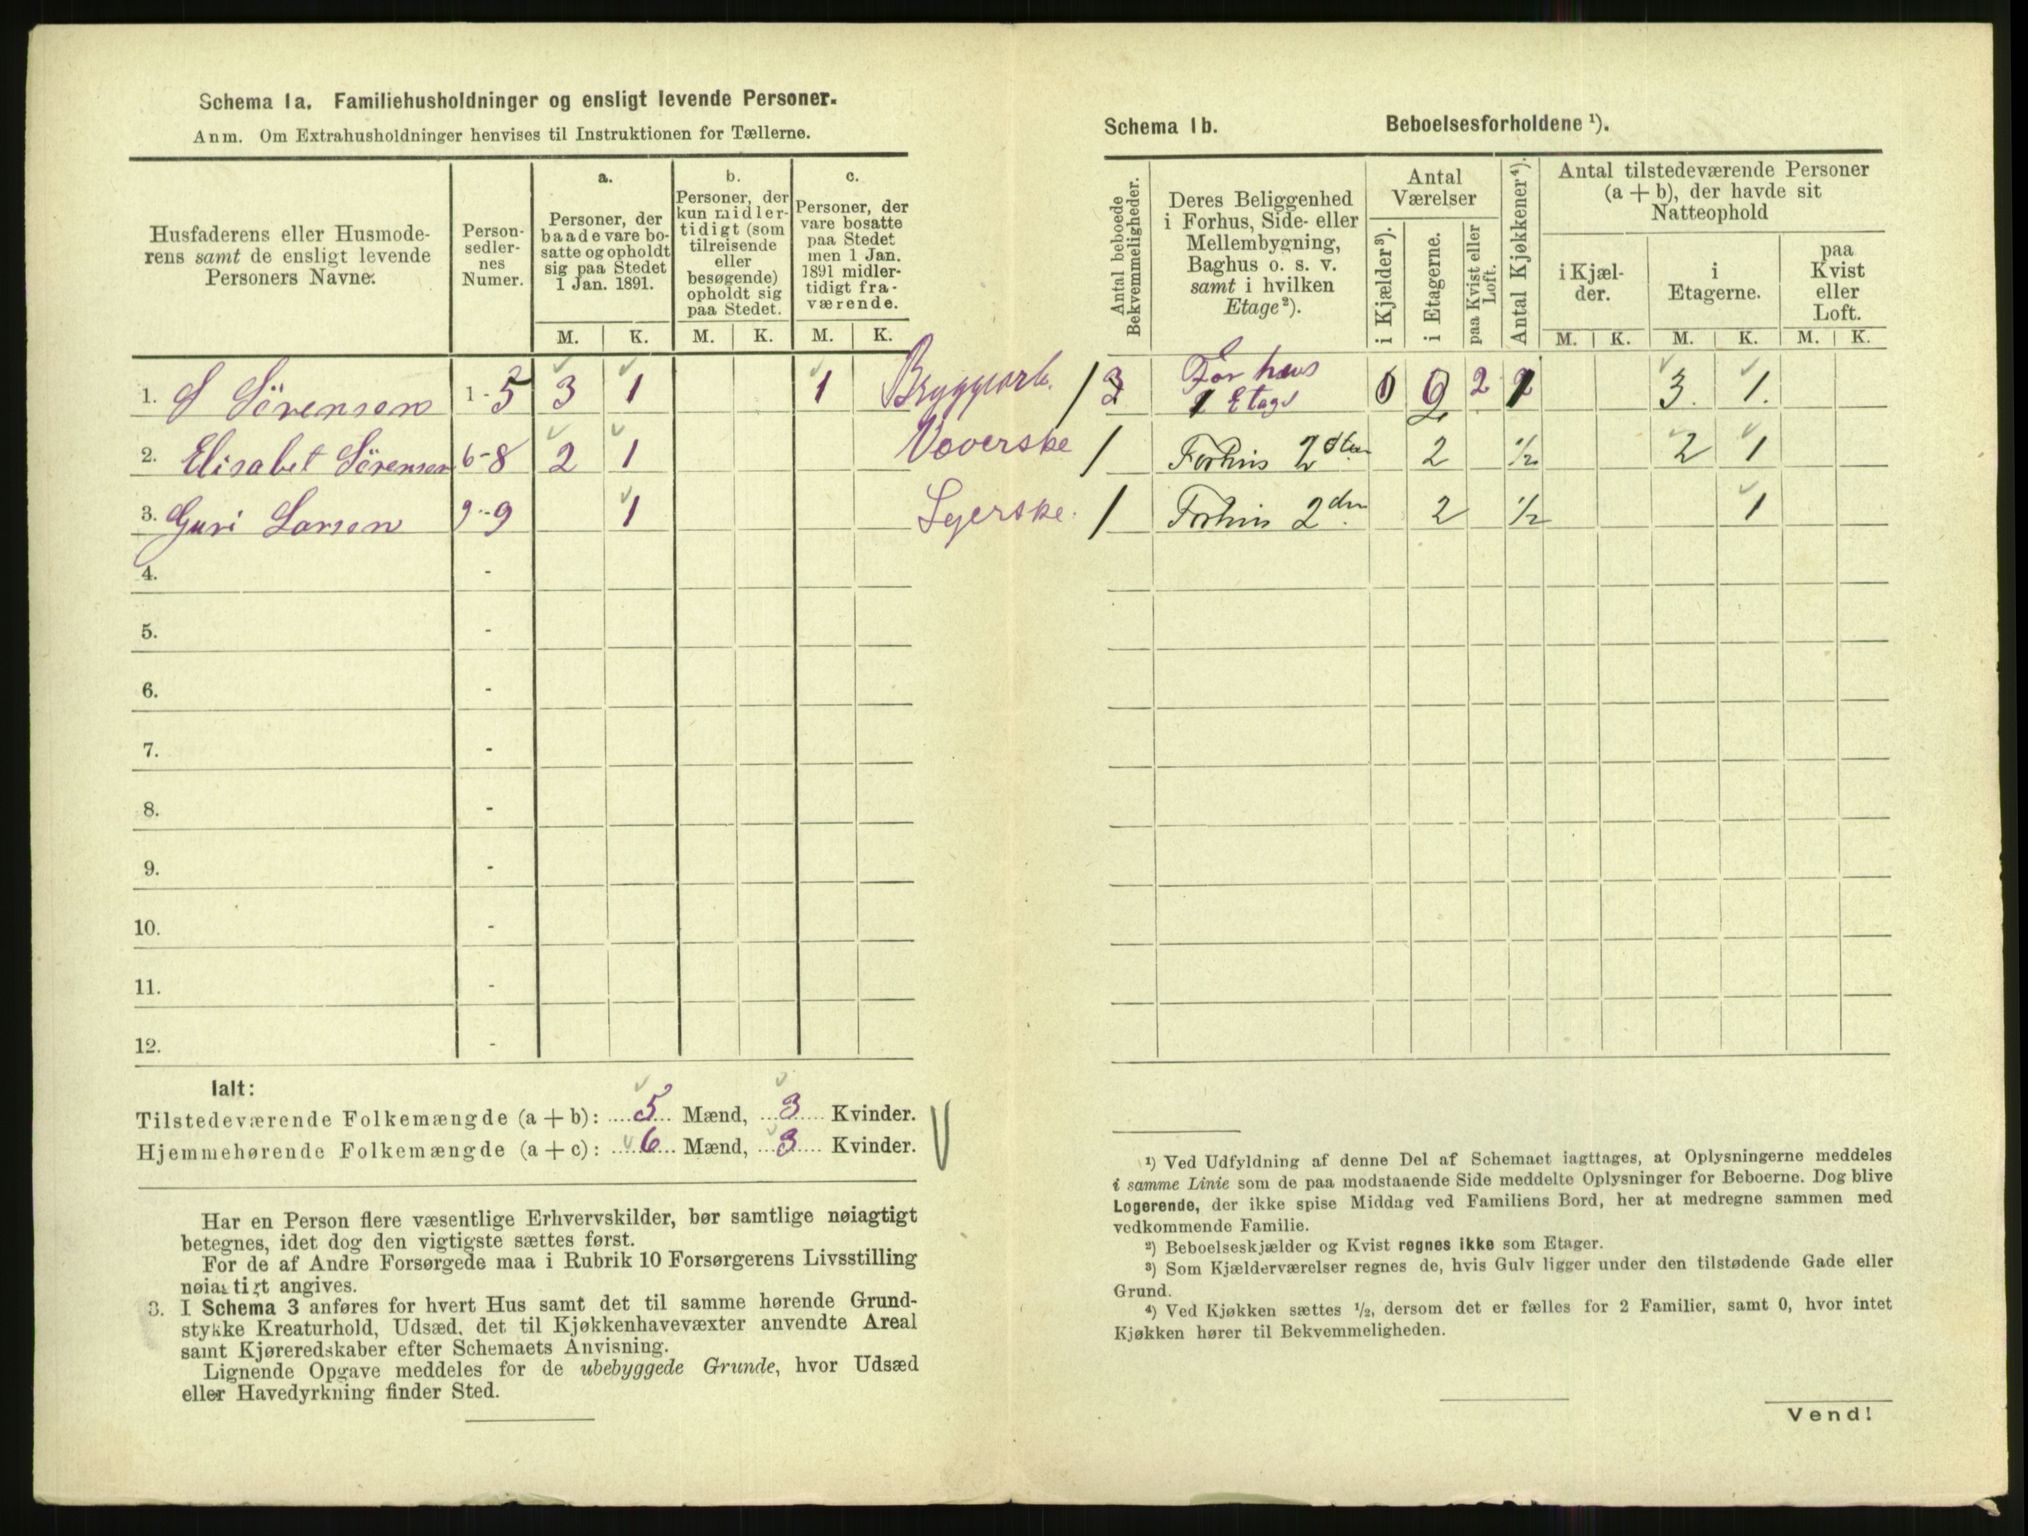 Schema 1a. Familiehusholdninger og ensligt levende Personer.
Anm. Om Extrahusholdninger henvises til Instruktionen for Tællerne.
Husfaderens eller Husmode-
rens samt de ensligt levende
Personers Navne.
Person-
sedler-
nes
Numer.
a.
Personer, der
baade vare bo-
satte og opholdt
sig paa Stedet
1 Jan. 1891.
b.
Personer, der
kun midler-
tidigt (som
tilreisende
eller
besøgende)
opholdt sig
paa Stedet.
c.
Personer, der
vare bosatte
paa Stedet
men 1 Jan.
1891 midler-
tidigt fra-
værende.
M. K. M. K. M. K.
1. S Sörensen 1-5 3 1 1 Bryggearb.
2. Elisabet Sörensen 6-8 2 1 Væverske
3. Guri Larsen 9-9 1 Syerske.
4. -
5. -
6. -
7. -
8. -
9. -
10. -
11. -
12. -
Ialt:
Tilstedeværende Folkemængde (a + b): 5 Mænd, 3 Kvinder.
Hjemmehørende Folkemængde (a + c): 6 Mænd, 3 Kvinder.
Har en Person flere væsentlige Erhvervskilder, bør samtlige nøiagtigt
betegnes, idet dog den vigtigste sættes først.
For de af Andre Forsørgede maa i Rubrik 10 Forsørgerens Livsstilling
nøiagtigt angives.
3. I Schema 3 anføres for hvert Hus samt det til samme hørende Grund-
stykke Kreaturhold, Udsæd, det til Kjøkkenhavevæxter anvendte Areal
samt Kjøreredskaber efter Schemaets Anvisning.
Lignende Opgave meddeles for de ubebyggede Grunde, hvor Udsæd
eller Havedyrkning finder Sted.
Schema 1b. Beboelsesforholdene ¹).
Antal beboede
Bekvemmeligheder.
Deres Beliggenhed
i Forhus, Side- eller
Mellembygning,
Baghus o. s. v.
samt i hvilken
Etage²).
Antal
Værelser
i Kjælder³).
i Etagerne.
paa Kvist eller
Loft.
Antal Kjøkkener⁴).
Antal tilstedeværende Personer
(a + b), der havde sit
Natteophold
i Kjæl-
der.
i
Etagerne.
paa
Kvist
eller
Loft.
M. K. M. K. M. K.
1 Forhus
1 Etage 0 2 2 1 3. 1.
1 Forhus 2den 2 ½ 2 1
1 Forhus 2den 2 ½ 1
¹) Ved Udfyldning af denne Del af Schemaet iagttages, at Oplysningerne meddeles
i samme Linie som de paa modstaaende Side meddelte Oplysninger for Beboerne. Dog blive
Logerende, der ikke spise Middag ved Familiens Bord, her at medregne sammen med
vedkommende Familie.
²) Beboelseskjælder og Kvist regnes ikke som Etager.
³) Som Kjælderværelser regnes de, hvis Gulv ligger under den tilstødende Gade eller
Grund.
⁴) Ved Kjøkken sættes ½, dersom det er fælles for 2 Familier, samt 0, hvor intet
Kjøkken hører til Bekvemmeligheden.
Vend!